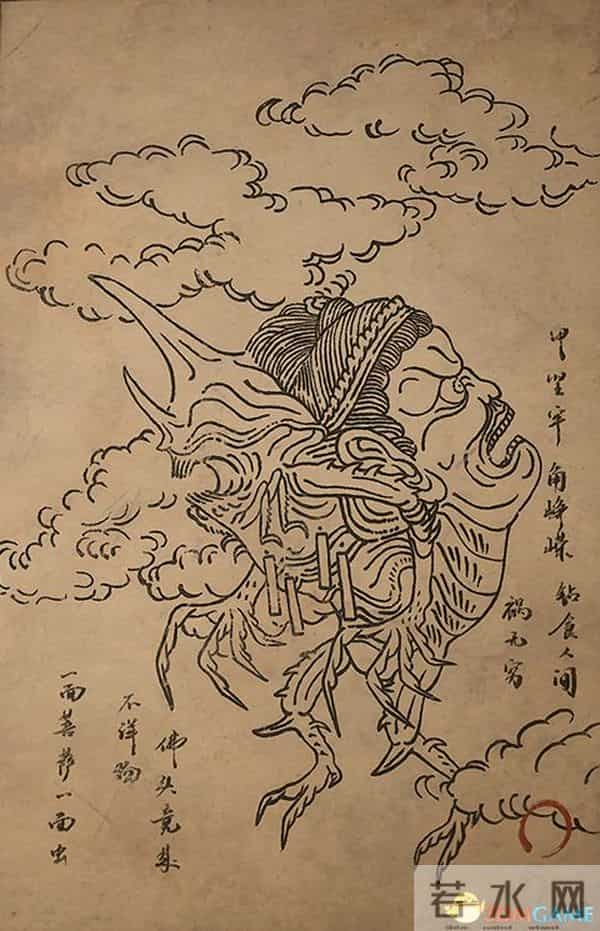 甲坚牢 角峥嵘 钻食人间
祸无穷
佛头竟
不祥物
一面菩萨一面虫
若水网
GAME